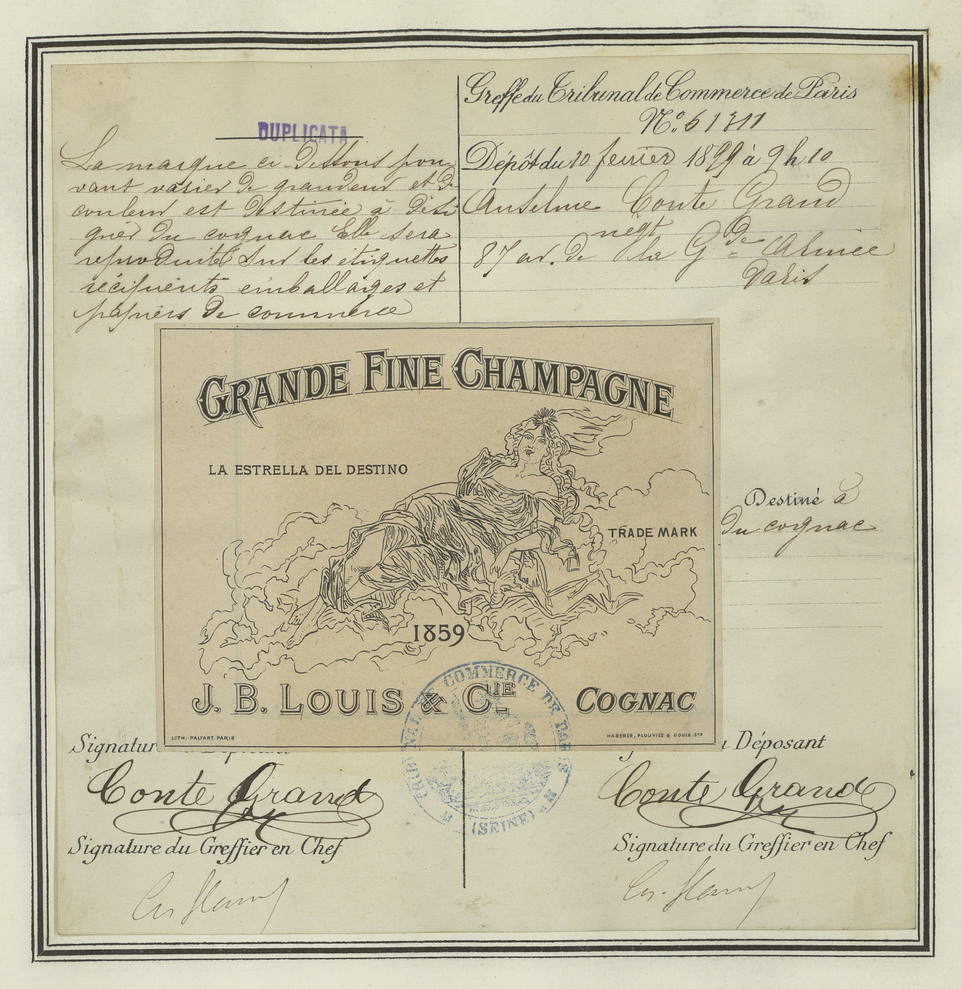 DUPLICATA
La marque ci dessous pou-
vant varier de grandeur et de
couleur est destinée à disti-
guer du cognac Elle sera
reproduite sur les etiquettes
récipients emballages et
papiers de commerce
Greffe du Tribunal de Commerce de Paris
N.º 61311
Dépôt du 10 fevrier 1899 à 9 h 10
Anselme Conte Grand
négt
87 av. de la Gde Armée
Paris
GRANDE FINE CHAMPAGNE
LA ESTRELLA DEL DESTINO
TRADE MARK
1859
J. B. LOUIS & CIE COGNAC
LITH. PALYART. PARIS
HABERER, PLOUVIEZ &
Destiné à
du cognac
TRIBUNAL DE COMMERCE DE PARIS
(SEINE)
Signatur
Déposant
Conte Grand
Conte Grand
Signature du Greffier en Chef
Signature du Greffier en Chef